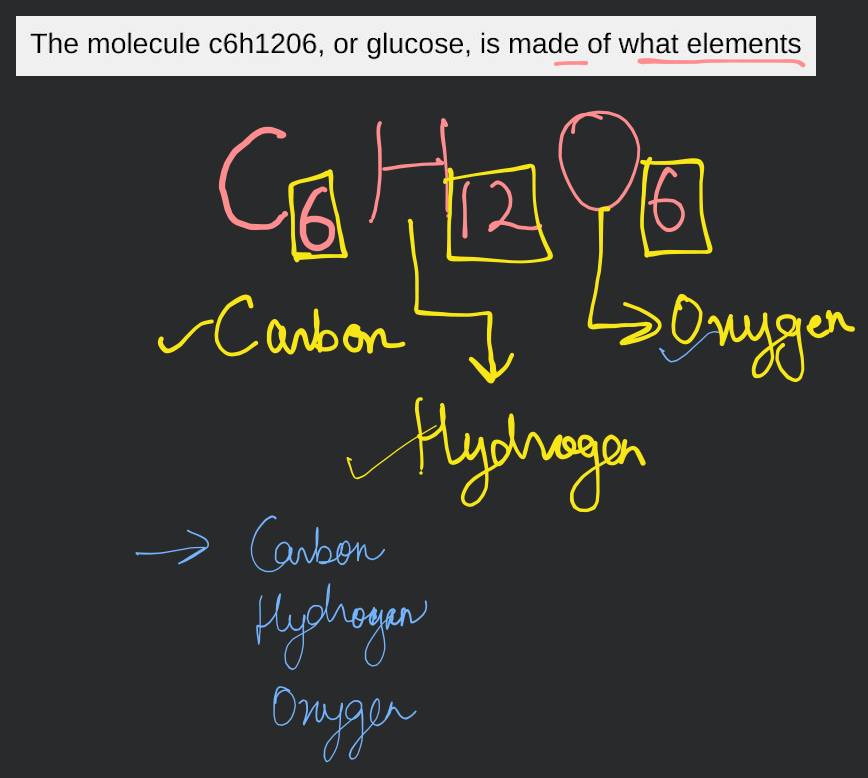 The molecule c6h1206, or glucose, is made of what elements
C6 H12 O6
Carbon
Oxygen
Hydrogen
Carbon
Hydrogen
Oxygen